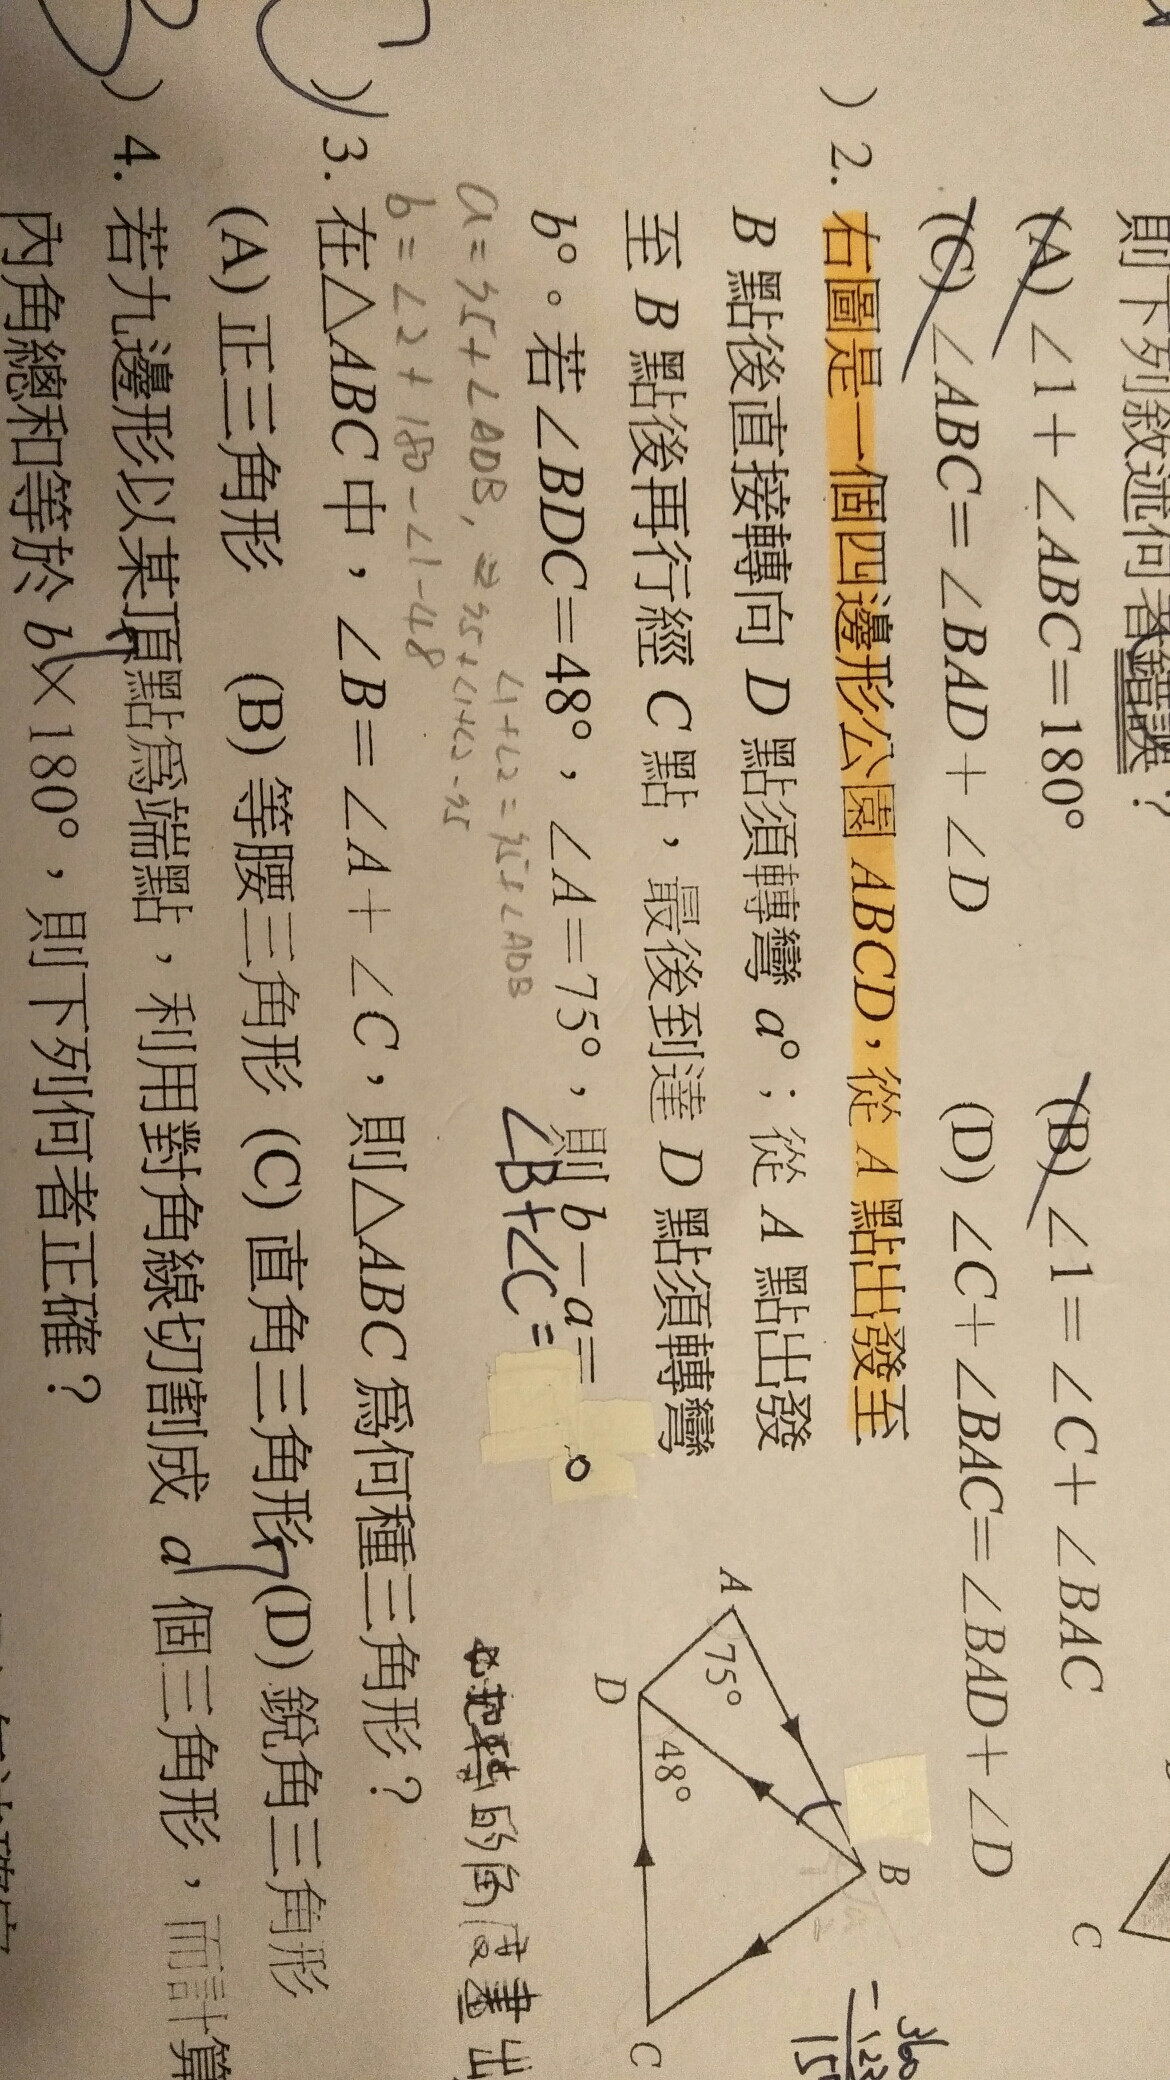 則下列敘述何者錯誤？
(A) ∠1＋∠ABC＝180° (B) ∠1＝∠C＋∠BAC
(C) ∠ABC＝∠BAD＋∠D (D) ∠C＋∠BAC＝∠BAD＋∠D
C
) 2. 右圖是一個四邊形公園 ABCD，從 A 點出發至
B 點後直接轉向 D 點須轉彎 a°；從 A 點出發
至 B 點後再行經 C 點，最後到達 D 點須轉彎
b°。若∠BDC＝48°，∠A＝75°，則 b－a＝ °
∠B+∠C=
A
75°
B
D
48°
C
360
b=∠2+180-∠1-48
的角度畫出
) 3. 在△ABC 中，∠B＝∠A＋∠C，則△ABC 為何種三角形？
(A) 正三角形 (B) 等腰三角形 (C) 直角三角形 (D) 銳角三角形
) 4. 若九邊形以某頂點為端點，利用對角線切割成 a 個三角形，而計算
內角總和等於 b×180°，則下列何者正確？